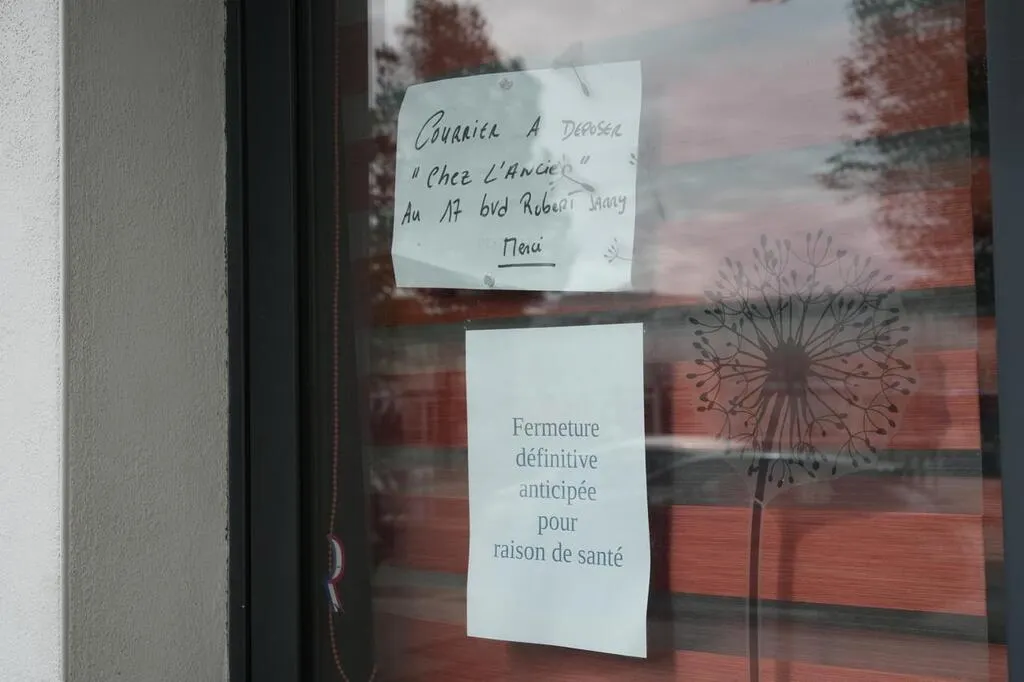 COURRIER A DEPOSER
"Chez L'Ancien"
Au 17 bvd Robert JARRY
Merci
Fermeture
définitive
anticipée
pour
raison de santé